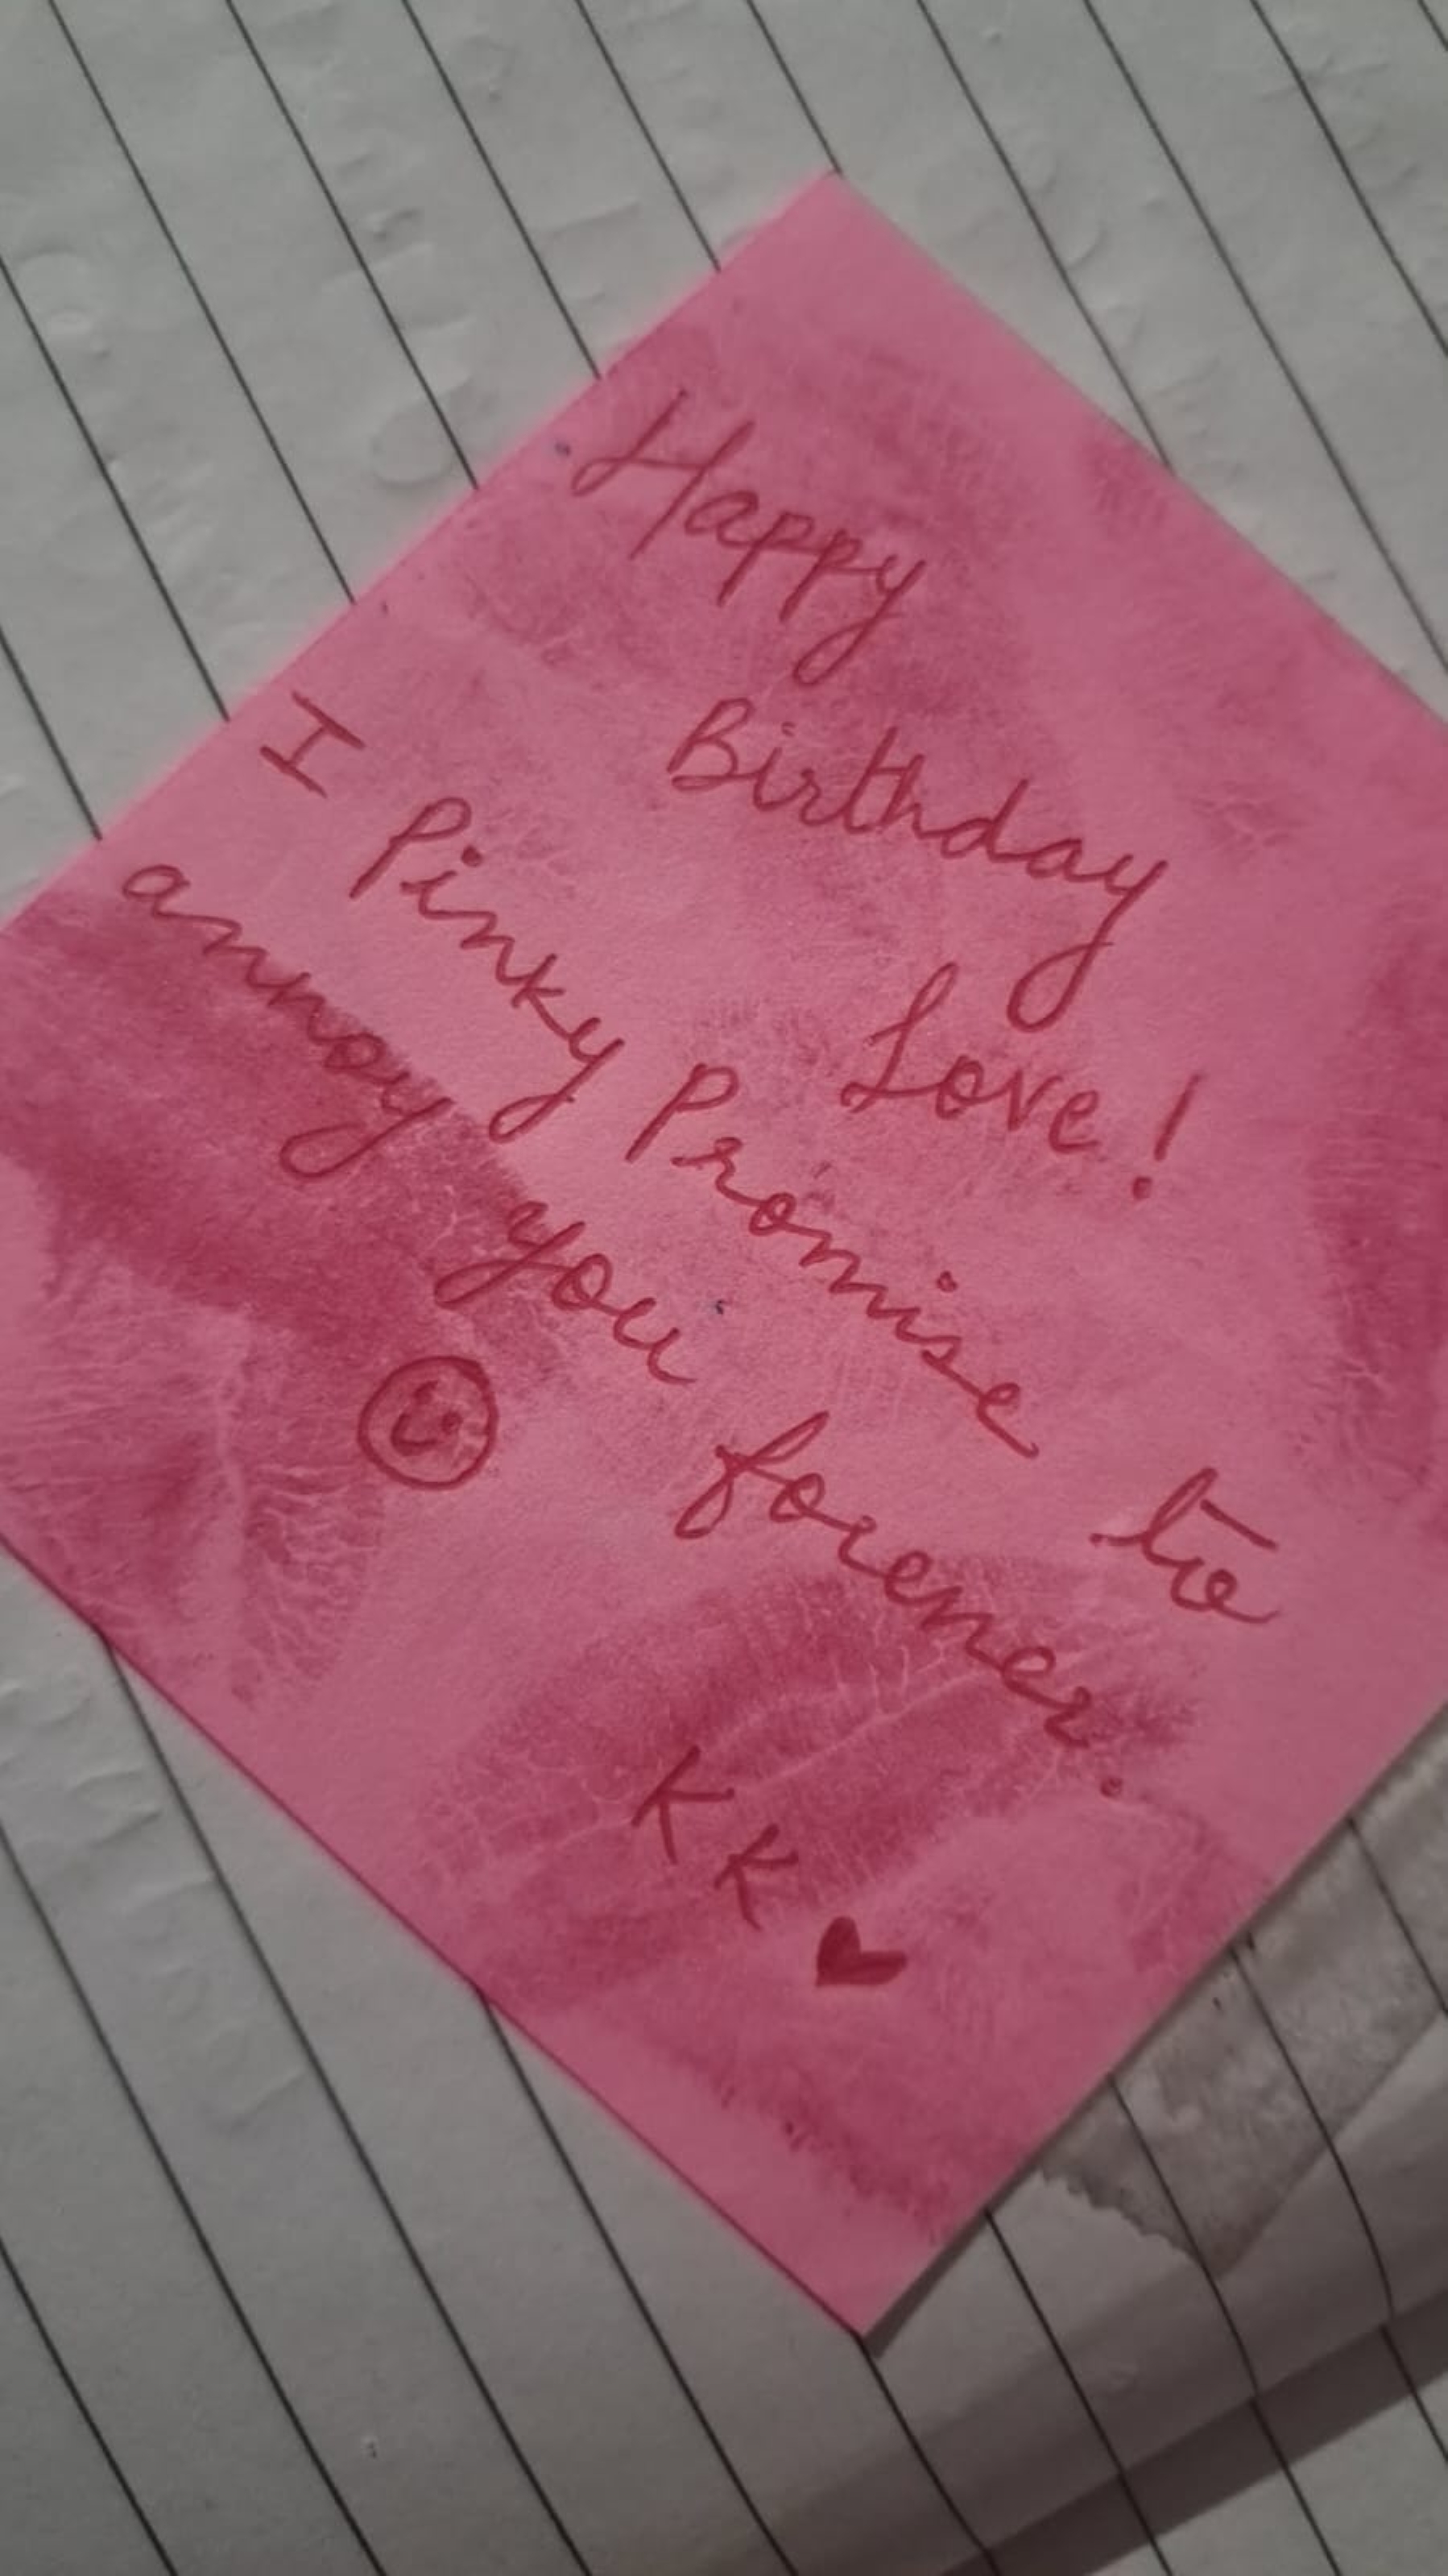 Happy
Birthday
Love!
I Pinky Promise to
annoy you forever.
☺
KK ♥